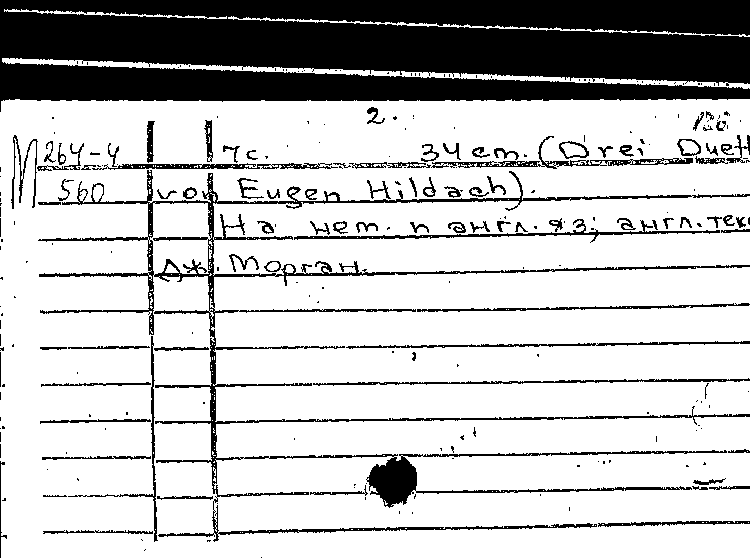 2.
126
М 264-4 7с. 34 cm. (Drei Duett
560 von Eugen Hildach).
На нем. и англ. яз; англ. текс
Дж. Морган.